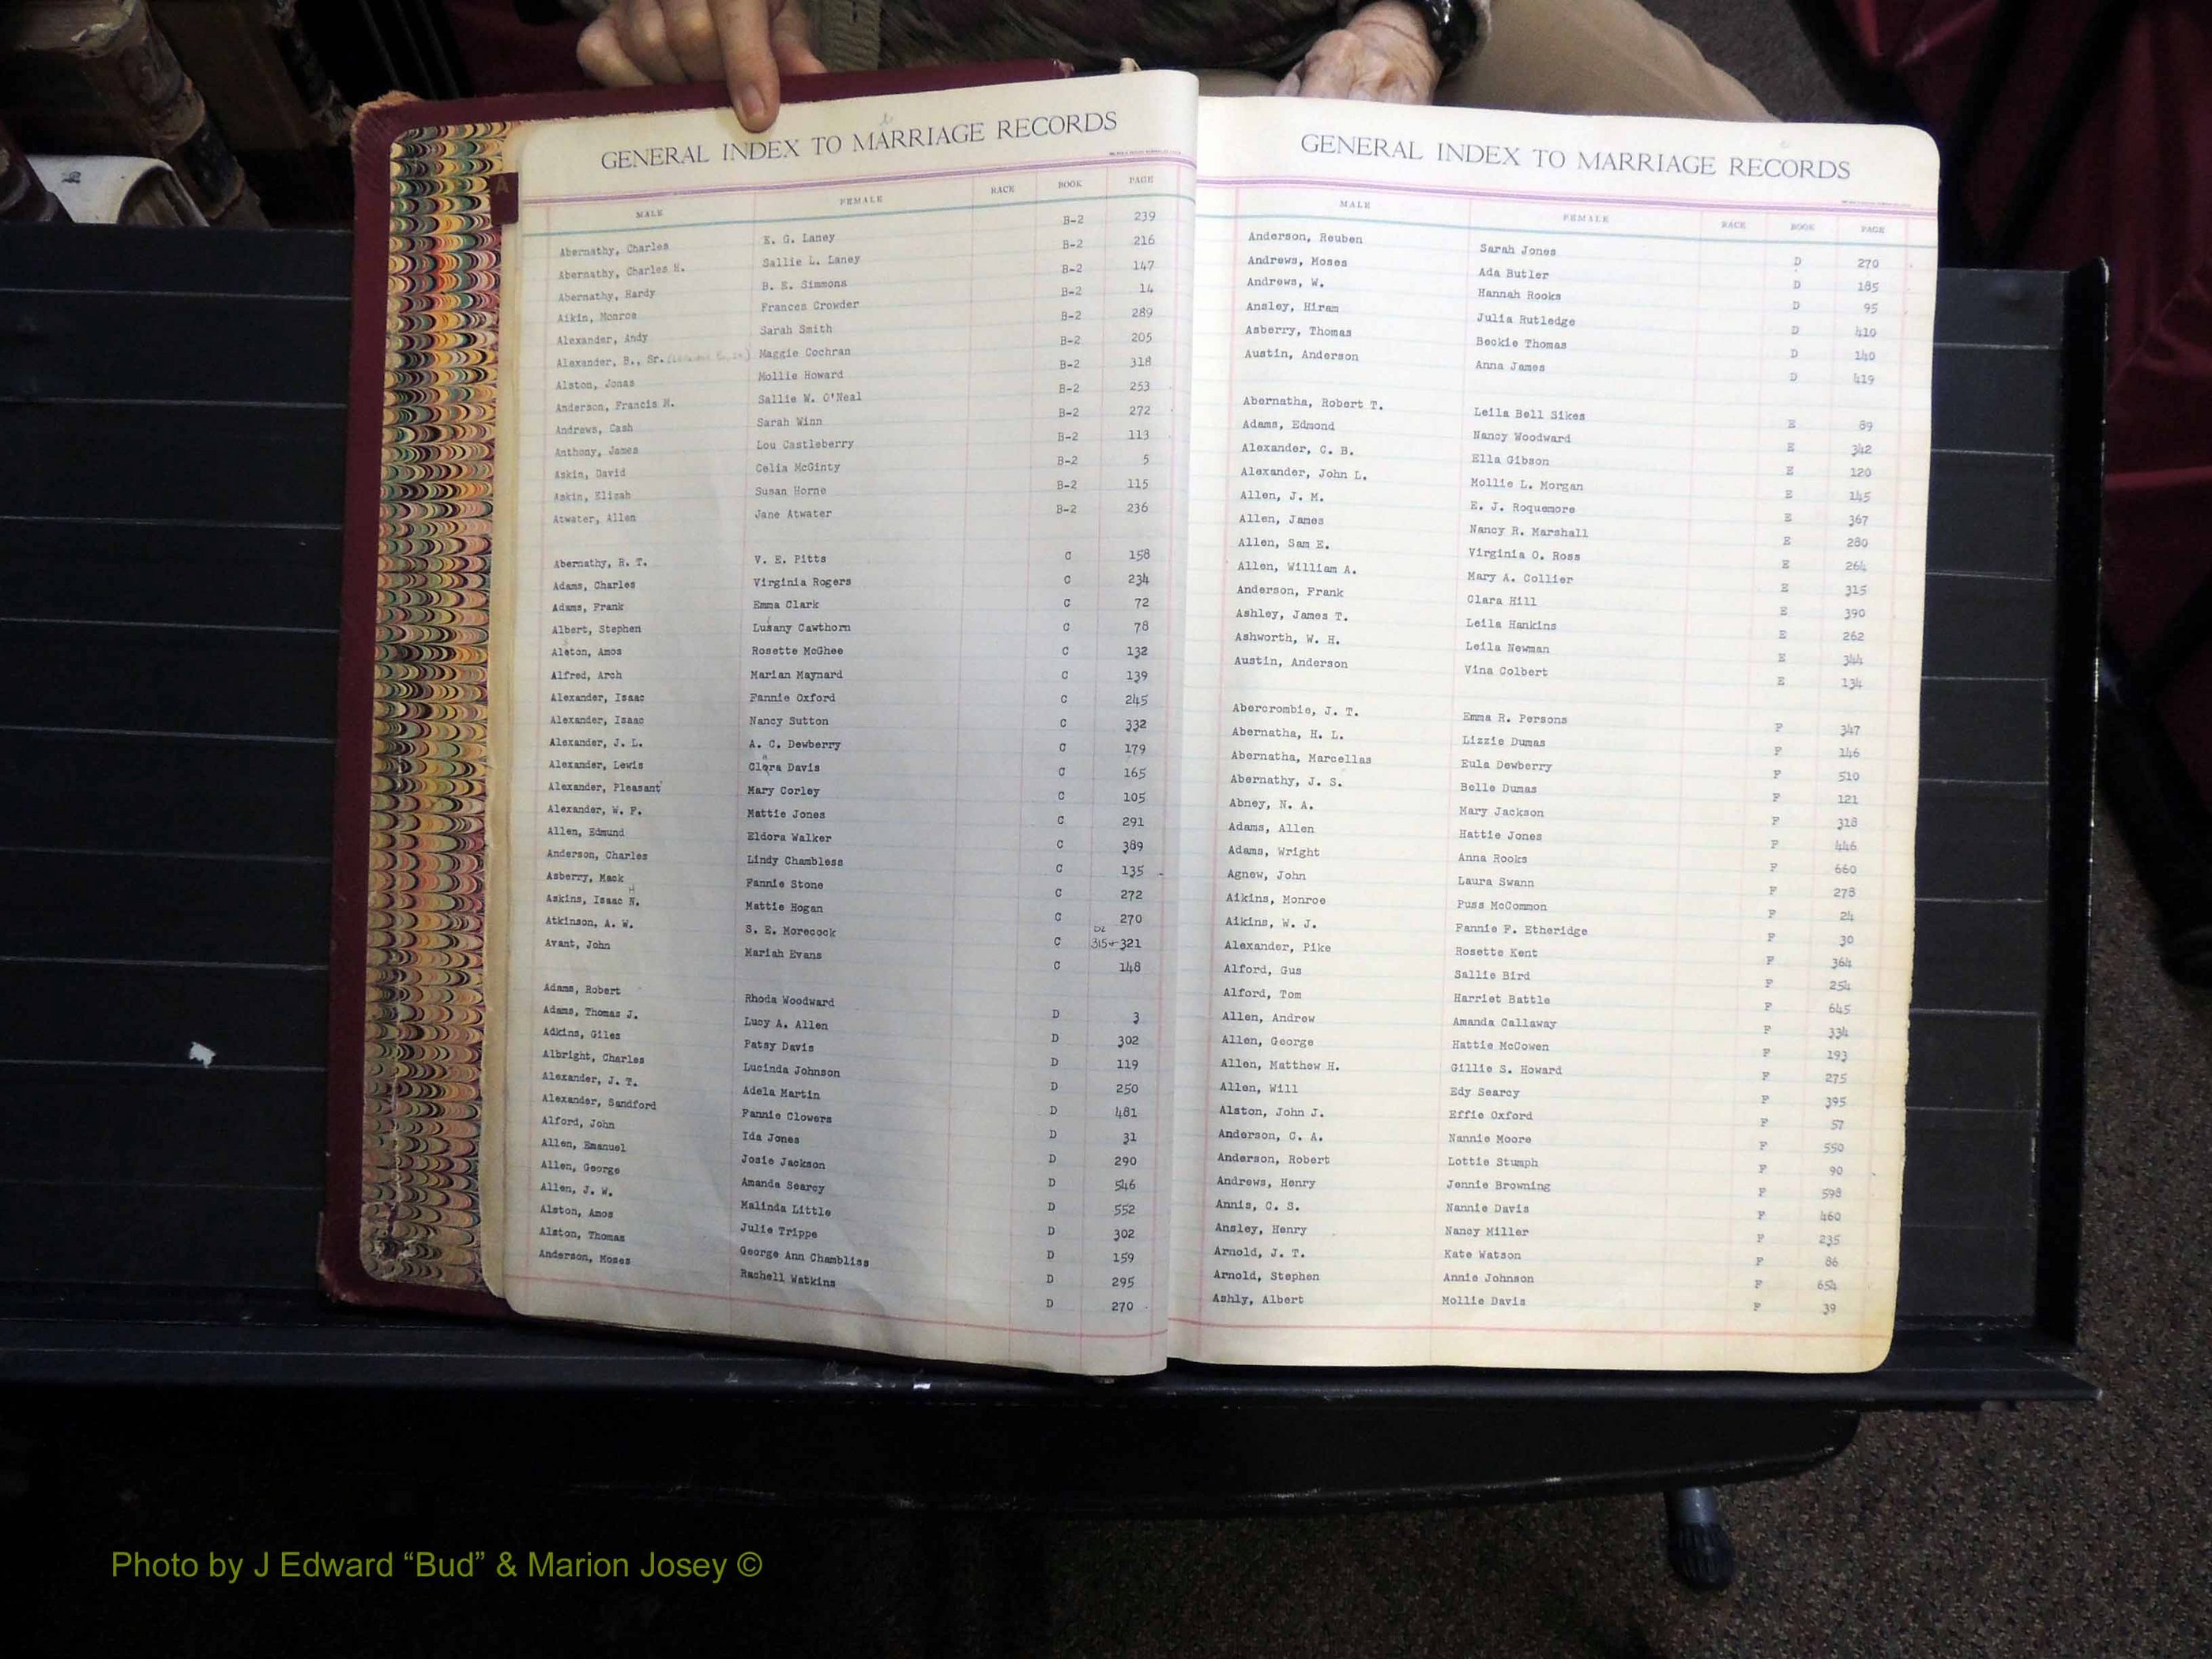 A
GENERAL INDEX TO MARRIAGE RECORDS
MALE FEMALE RACE BOOK PAGE
Abernathy, Charles E. G. Laney B-2 239
Abernathy, Charles H. Sallie L. Laney B-2 216
Abernathy, Hardy B. E. Simmons B-2 147
Aikin, Monroe Frances Crowder B-2 14
Alexander, Andy Sarah Smith B-2 289
Alexander, B., Sr. Maggie Cochran B-2 205
Alston, Jonas Mollie Howard B-2 318
Anderson, Francis M. Sallie W. O'Neal B-2 253
Andrews, Cash Sarah Winn B-2 272
Anthony, James Lou Castleberry B-2 113
Askin, David Celia McGinty B-2 5
Askin, Elizah Susan Horne B-2 115
Atwater, Allen Jane Atwater B-2 236
Abernathy, R. T. V. E. Pitts C 158
Adams, Charles Virginia Rogers C 234
Adams, Frank Emma Clark C 72
Albert, Stephen Lusany Cawthorn C 78
Alston, Amos Rosette McGhee C 132
Alfred, Arch Marian Maynard C 139
Alexander, Isaac Fannie Oxford C 245
Alexander, Isaac Nancy Sutton C 332
Alexander, J. L. A. C. Dewberry C 179
Alexander, Lewis Clora Davis C 165
Alexander, Pleasant Mary Corley C 105
Alexander, W. F. Mattie Jones C 291
Allen, Edmund Eldora Walker C 389
Anderson, Charles Lindy Chambless C 135
Asberry, Mack Fannie Stone C 272
Askins, Isaac N. H Mattie Hogan C 270
Atkinson, A. W. S. E. Morecock C 315 321
Avant, John Mariah Evans C 148
Adams, Robert Rhoda Woodward D 3
Adams, Thomas J. Lucy A. Allen D 302
Adkins, Giles Patsy Davis D 119
Albright, Charles Lucinda Johnson D 250
Alexander, J. T. Adela Martin D 481
Alexander, Sandford Fannie Clowers D 31
Alford, John Ida Jones D 290
Allen, Emanuel Josie Jackson D 546
Allen, George Amanda Searcy D 552
Allen, J. W. Malinda Little D 302
Alston, Amos Julie Trippe D 159
Alston, Thomas George Ann Chambliss D 295
Anderson, Moses Rachell Watkins D 270
GENERAL INDEX TO MARRIAGE RECORDS
MALE FEMALE RACE BOOK PAGE
Anderson, Reuben Sarah Jones D 270
Andrews, Moses Ada Butler D 185
Andrews, W. Hannah Rooks D 95
Ansley, Hiram Julia Rutledge D 410
Asberry, Thomas Beckie Thomas D 140
Austin, Anderson Anna James D 419
Abernatha, Robert T. Leila Bell Sikes E 89
Adams, Edmond Nancy Woodward E 342
Alexander, C. B. Ella Gibson E 120
Alexander, John L. Mollie L. Morgan E 145
Allen, J. M. E. J. Roquemore E 367
Allen, James Nancy R. Marshall E 280
Allen, Sam E. Virginia O. Ross E 264
Allen, William A. Mary A. Collier E 315
Anderson, Frank Clara Hill E 390
Ashley, James T. Leila Hankins E 262
Ashworth, W. H. Leila Newman E 344
Austin, Anderson Vina Colbert E 134
Abercrombie, J. T. Emma R. Persons F 347
Abernatha, H. L. Lizzie Dumas F 146
Abernatha, Marcellas Eula Dewberry F 510
Abernathy, J. S. Belle Dumas F 121
Abney, N. A. Mary Jackson F 318
Adams, Allen Hattie Jones F 446
Adams, Wright Anna Rooks F 660
Agnew, John Laura Swann F 278
Aikins, Monroe Puss McCommon F 24
Aikins, W. J. Fannie F. Etheridge F 30
Alexander, Pike Rosette Kent F 364
Alford, Gus Sallie Bird F 254
Alford, Tom Harriet Battle F 645
Allen, Andrew Amanda Callaway F 334
Allen, George Hattie McCowen F 193
Allen, Matthew H. Gillie S. Howard F 275
Allen, Will Edy Searcy F 395
Alston, John J. Effie Oxford F 57
Anderson, C. A. Nannie Moore F 550
Anderson, Robert Lottie Stumph F 90
Andrews, Henry Jennie Browning F 598
Annis, C. S. Nannie Davis F 460
Ansley, Henry Nancy Miller F 235
Arnold, J. T. Kate Watson F 86
Arnold, Stephen Annie Johnson F 654
Ashly, Albert Mollie Davis F 39
Photo by J Edward “Bud” & Marion Josey ©